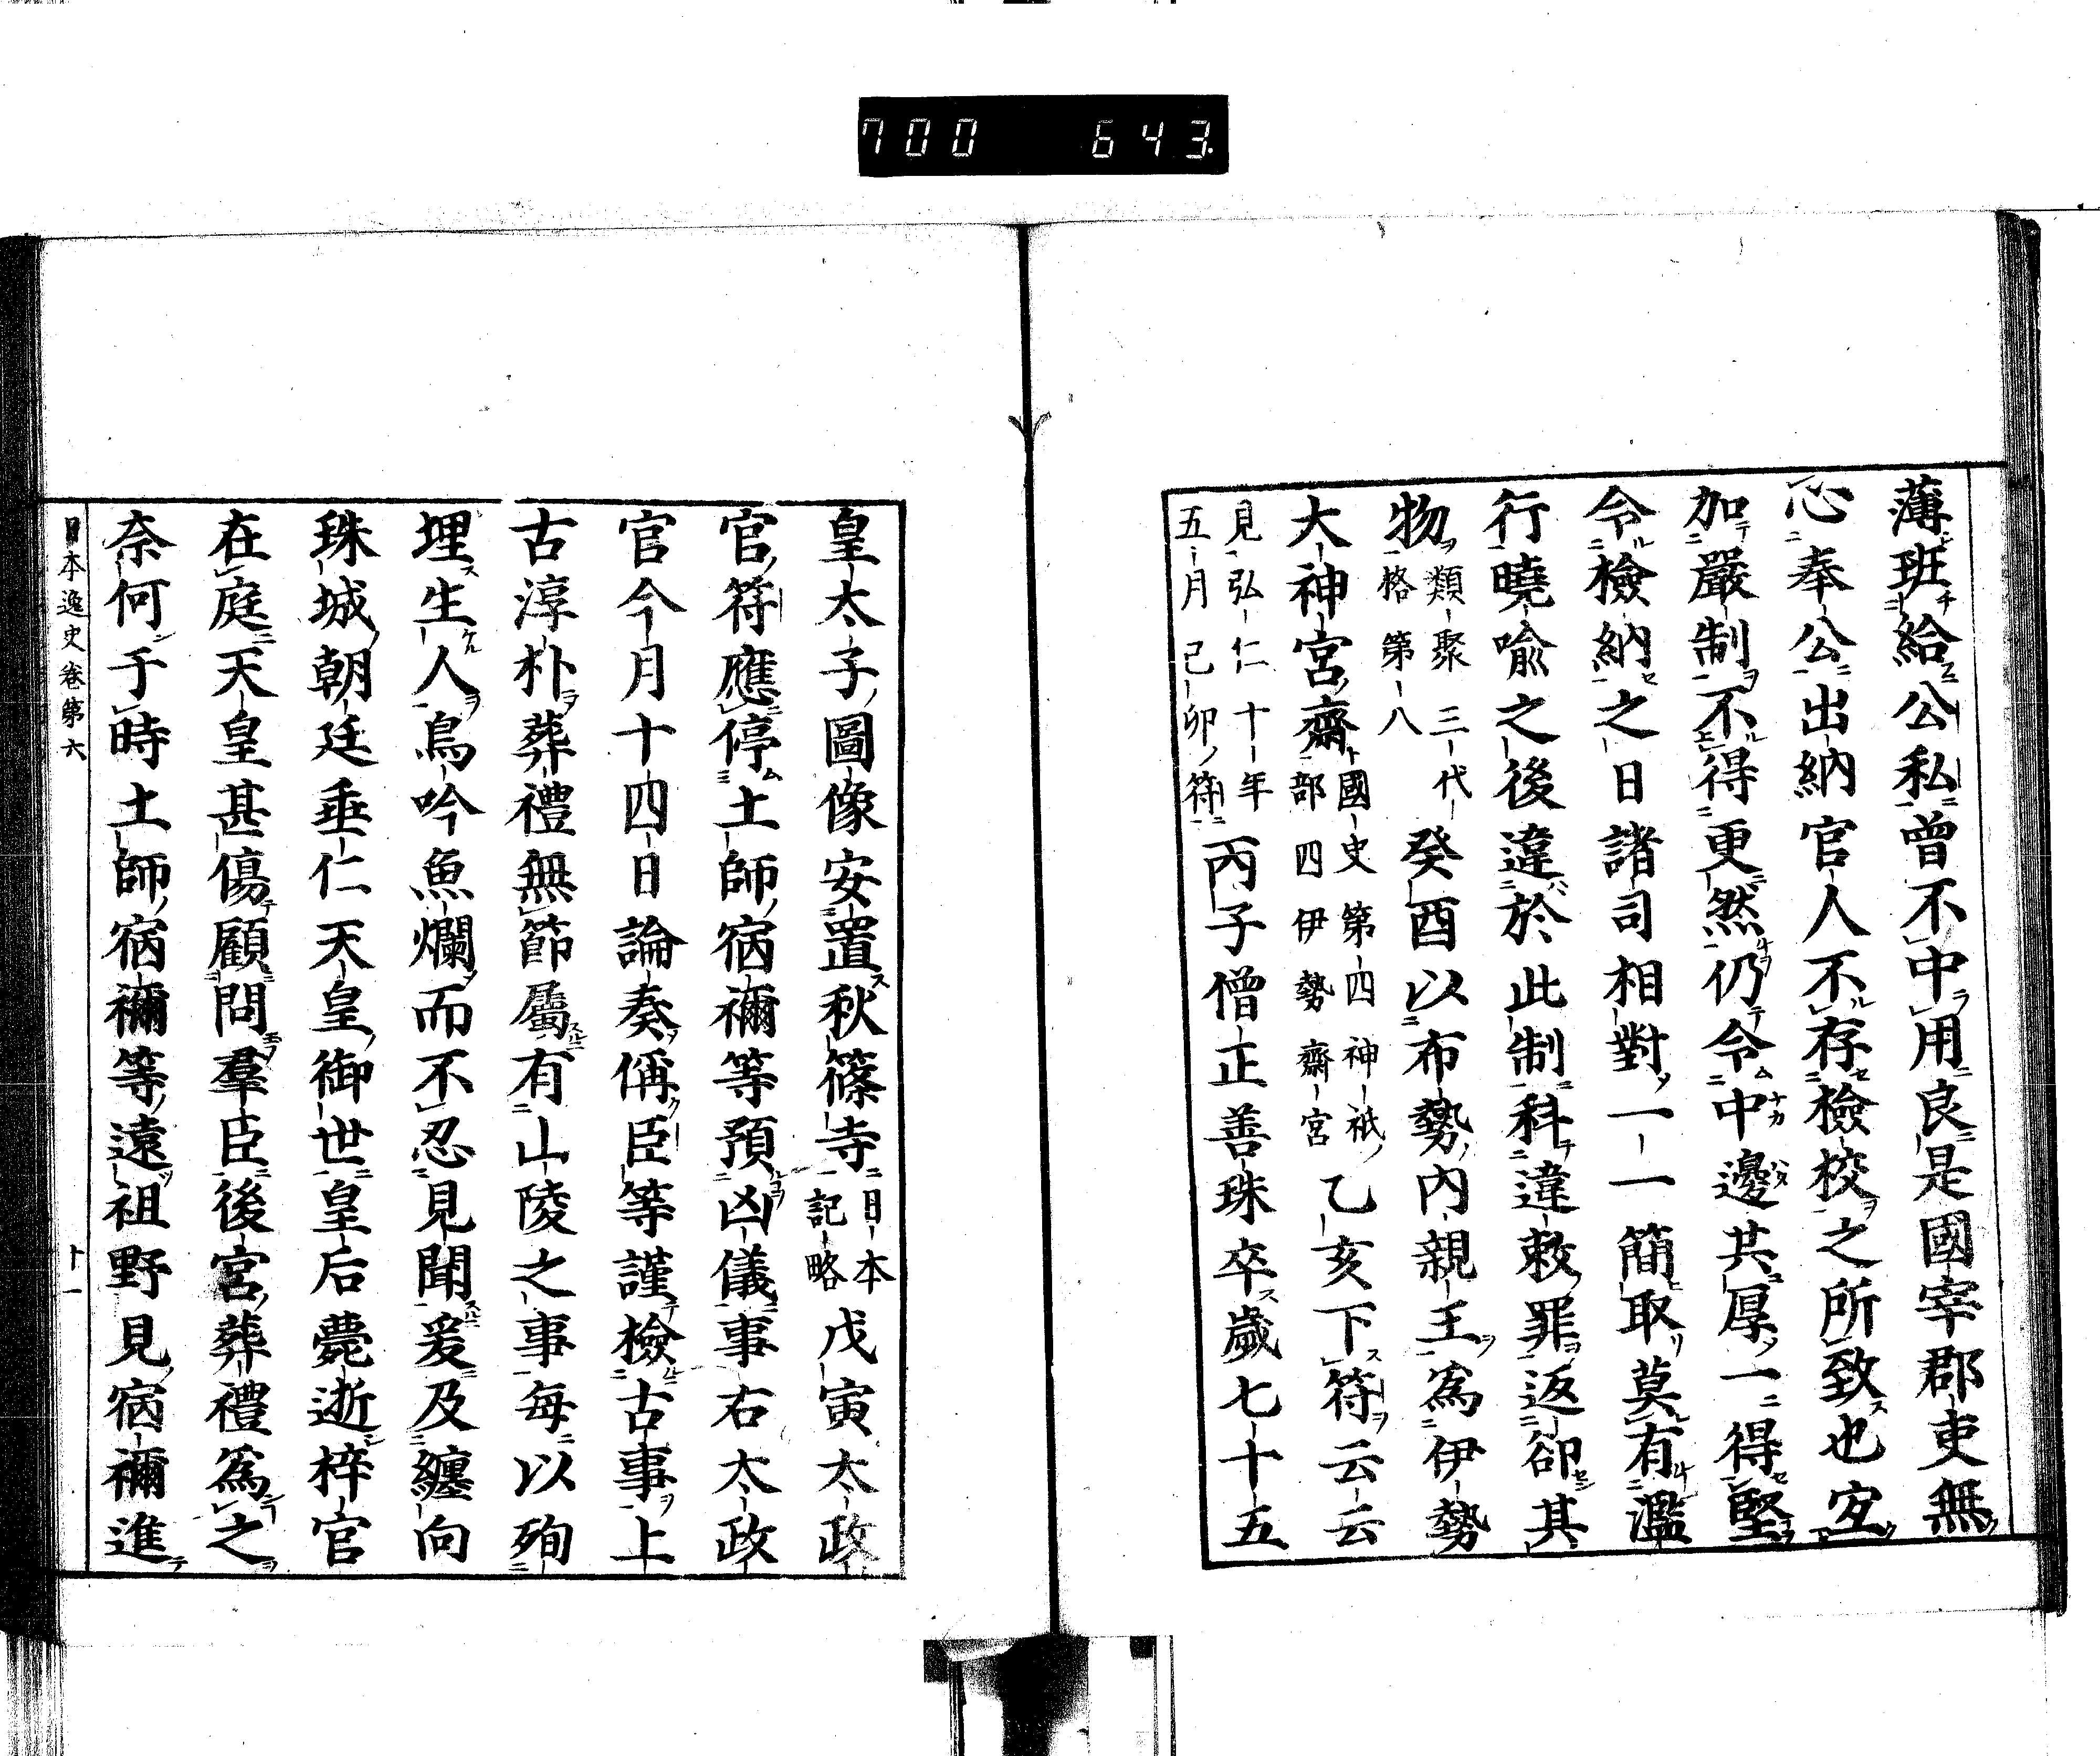 700 643.
薄班給公私曾不中用良是國宰郡吏無
心奉公出納官人不存檢校之所致也宜
加嚴制不得更然仍令中邊共厚一得堅
令檢納之日諸司相對一一簡取莫有濫
行曉喩之後違於此制科違敕罪返卻其
物類聚三代格第八癸酉以布勢內親王爲伊勢
大神宮齋國史第四神祇部四伊勢齋宮乙亥下符云云
見弘仁十年五月己卯符丙子僧正善珠卒歲七十五
皇太子圖像安置秋篠寺日本記略戊寅太政
官符應停土師宿禰等預凶儀事右太政
官今月十四日論奏偁臣等謹檢古事上
古淳朴葬禮無節屬有山陵之事每以殉
埋生人鳥吟魚爛而不忍見聞爰及纏向
珠城朝廷垂仁天皇御世皇后薨逝梓官
在庭天皇甚傷顧問羣臣後宮葬禮爲之
奈何于時土師宿禰等遠祖野見宿禰進
日本逸史卷第六 十一